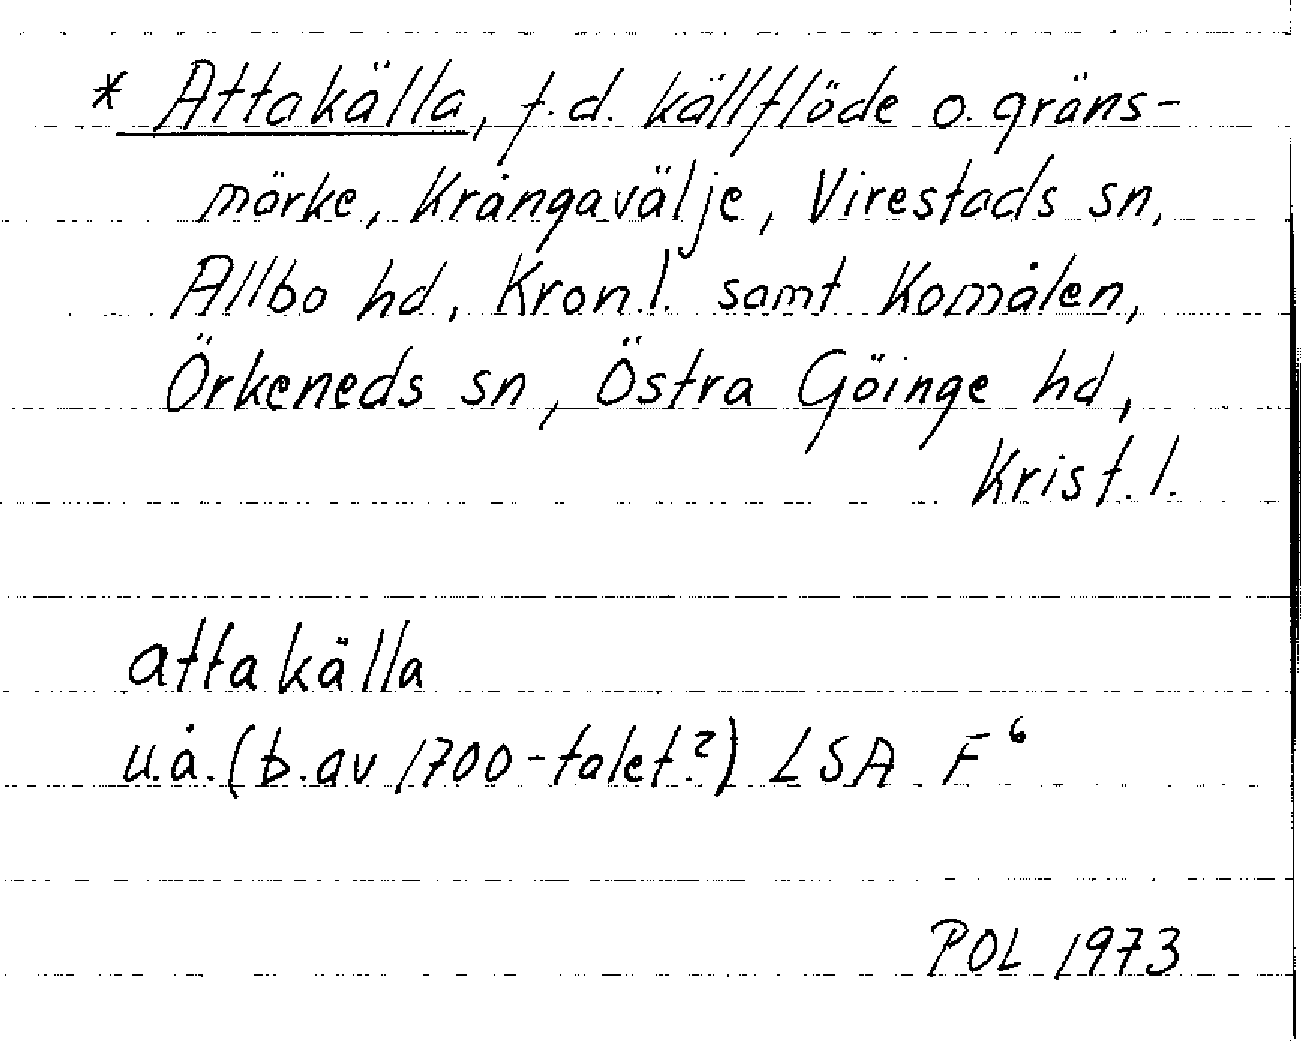 * Attakälla, f.d. källflöde o. gräns-
märke, Krångavälje, Virestads sn,
Allbo hd, Kron.l. samt Komålen,
Örkeneds sn, Östra Göinge hd,
Krist.l.
attakälla
u.å. (b.av 1700-talet?) LSA F⁶
POL 1973